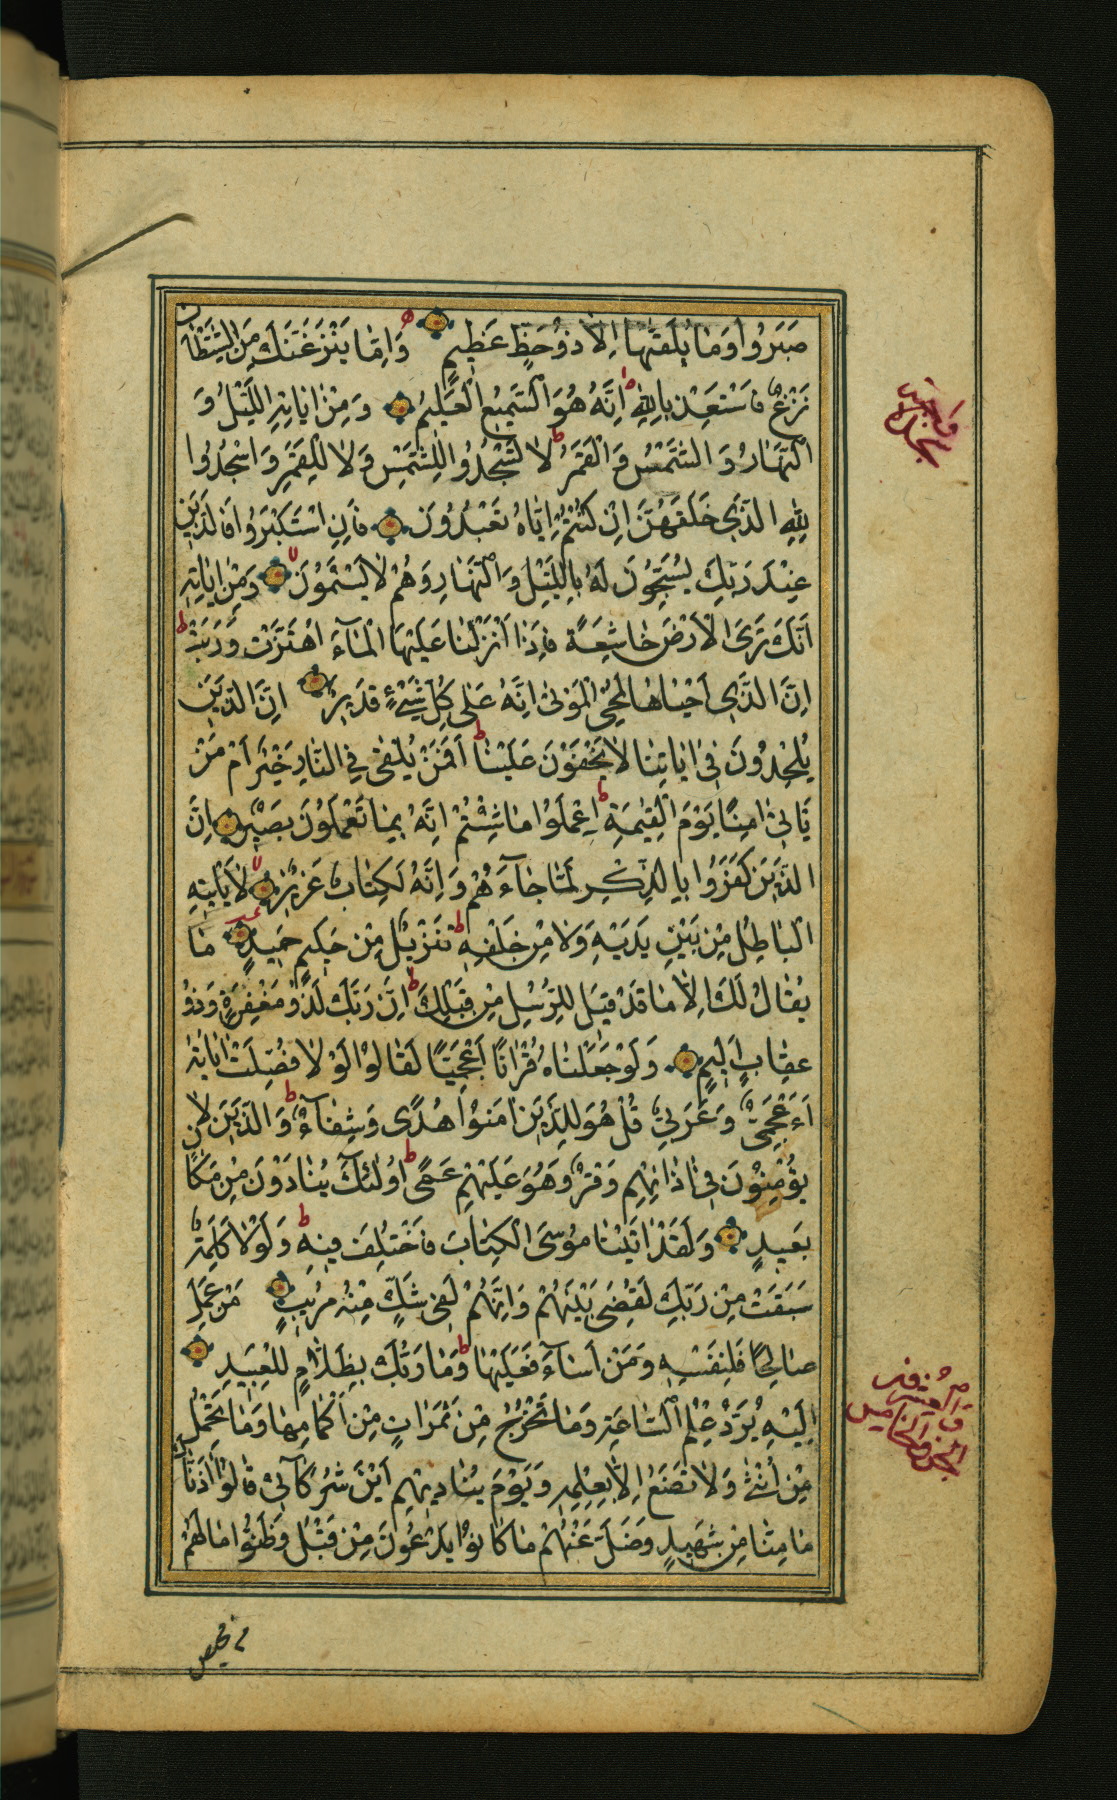 صَبَرُوا وَمَا يُلَقّٰيهَا اِلَّا ذُو حَظٍّ عَظِيمٍ وَاِمَّا يَنْزَغَنَّكَ مِنَ الشَّيْطَانِ
نَزْغٌ فَاسْتَعِذْ بِاللّٰهِ اِنَّهُ هُوَ السَّمِيعُ الْعَلِيمُ وَمِنْ اٰيَاتِهِ اللَّيْلُ وَ
النَّهَارُ وَالشَّمْسُ وَالْقَمَرُ لَا تَسْجُدُوا لِلشَّمْسِ وَلَا لِلْقَمَرِ وَاسْجُدُوا
لِلّٰهِ الَّذِي خَلَقَهُنَّ اِنْ كُنْتُمْ اِيَّاهُ تَعْبُدُونَ فَاِنِ اسْتَكْبَرُوا فَالَّذِينَ
عِنْدَ رَبِّكَ يُسَبِّحُونَ لَهُ بِاللَّيْلِ وَالنَّهَارِ وَهُمْ لَا يَسْئَمُونَ وَمِنْ اٰيَاتِهِ
اَنَّكَ تَرَى الْاَرْضَ خَاشِعَةً فَاِذَا اَنْزَلْنَا عَلَيْهَا الْمَآءَ اهْتَزَّتْ وَرَبَتْ
اِنَّ الَّذِي اَحْيَاهَا لَمُحْيِ الْمَوْتٰى اِنَّهُ عَلٰى كُلِّ شَيْءٍ قَدِيرٌ اِنَّ الَّذِينَ
يُلْحِدُونَ فِي اٰيَاتِنَا لَا يَخْفَوْنَ عَلَيْنَا اَفَمَنْ يُلْقٰى فِي النَّارِ خَيْرٌ اَمْ مَنْ
يَاْتِي اٰمِنًا يَوْمَ الْقِيٰمَةِ اِعْمَلُوا مَا شِئْتُمْ اِنَّهُ بِمَا تَعْمَلُونَ بَصِيرٌ اِنَّ
الَّذِينَ كَفَرُوا بِالذِّكْرِ لَمَّا جَآءَهُمْ وَاِنَّهُ لَكِتَابٌ عَزِيزٌ لَا يَاْتِيهِ
الْبَاطِلُ مِنْ بَيْنِ يَدَيْهِ وَلَا مِنْ خَلْفِهِ تَنْزِيلٌ مِنْ حَكِيمٍ حَمِيدٍ مَا
يُقَالُ لَكَ اِلَّا مَا قَدْ قِيلَ لِلرُّسُلِ مِنْ قَبْلِكَ اِنَّ رَبَّكَ لَذُو مَغْفِرَةٍ وَذُو
عِقَابٍ اَلِيمٍ وَلَوْ جَعَلْنَاهُ قُرْاٰنًا اَعْجَمِيًّا لَقَالُوا لَوْلَا فُصِّلَتْ اٰيَاتُهُ
ءَاَعْجَمِيٌّ وَعَرَبِيٌّ قُلْ هُوَ لِلَّذِينَ اٰمَنُوا هُدًى وَشِفَآءٌ وَالَّذِينَ لَا
يُؤْمِنُونَ فِي اٰذَانِهِمْ وَقْرٌ وَهُوَ عَلَيْهِمْ عَمًى اُولٰئِكَ يُنَادَوْنَ مِنْ مَكَانٍ
بَعِيدٍ وَلَقَدْ اٰتَيْنَا مُوسَى الْكِتَابَ فَاخْتُلِفَ فِيهِ وَلَوْلَا كَلِمَةٌ
سَبَقَتْ مِنْ رَبِّكَ لَقُضِيَ بَيْنَهُمْ وَاِنَّهُمْ لَفِي شَكٍّ مِنْهُ مُرِيبٍ مَنْ عَمِلَ
صَالِحًا فَلِنَفْسِهِ وَمَنْ اَسَآءَ فَعَلَيْهَا وَمَا رَبُّكَ بِظَلَّامٍ لِلْعَبِيدِ
اِلَيْهِ يُرَدُّ عِلْمُ السَّاعَةِ وَمَا تَخْرُجُ مِنْ ثَمَرَاتٍ مِنْ اَكْمَامِهَا وَمَا تَحْمِلُ
مِنْ اُنْثٰى وَلَا تَضَعُ اِلَّا بِعِلْمِهِ وَيَوْمَ يُنَادِيهِمْ اَيْنَ شُرَكَآئِي قَالُوا اٰذَنَّاكَ
مَا مِنَّا مِنْ شَهِيدٍ وَضَلَّ عَنْهُمْ مَا كَانُوا يَدْعُونَ مِنْ قَبْلُ وَظَنُّوا مَا لَهُمْ
من محيص
الجزو الخامس
والعشرون